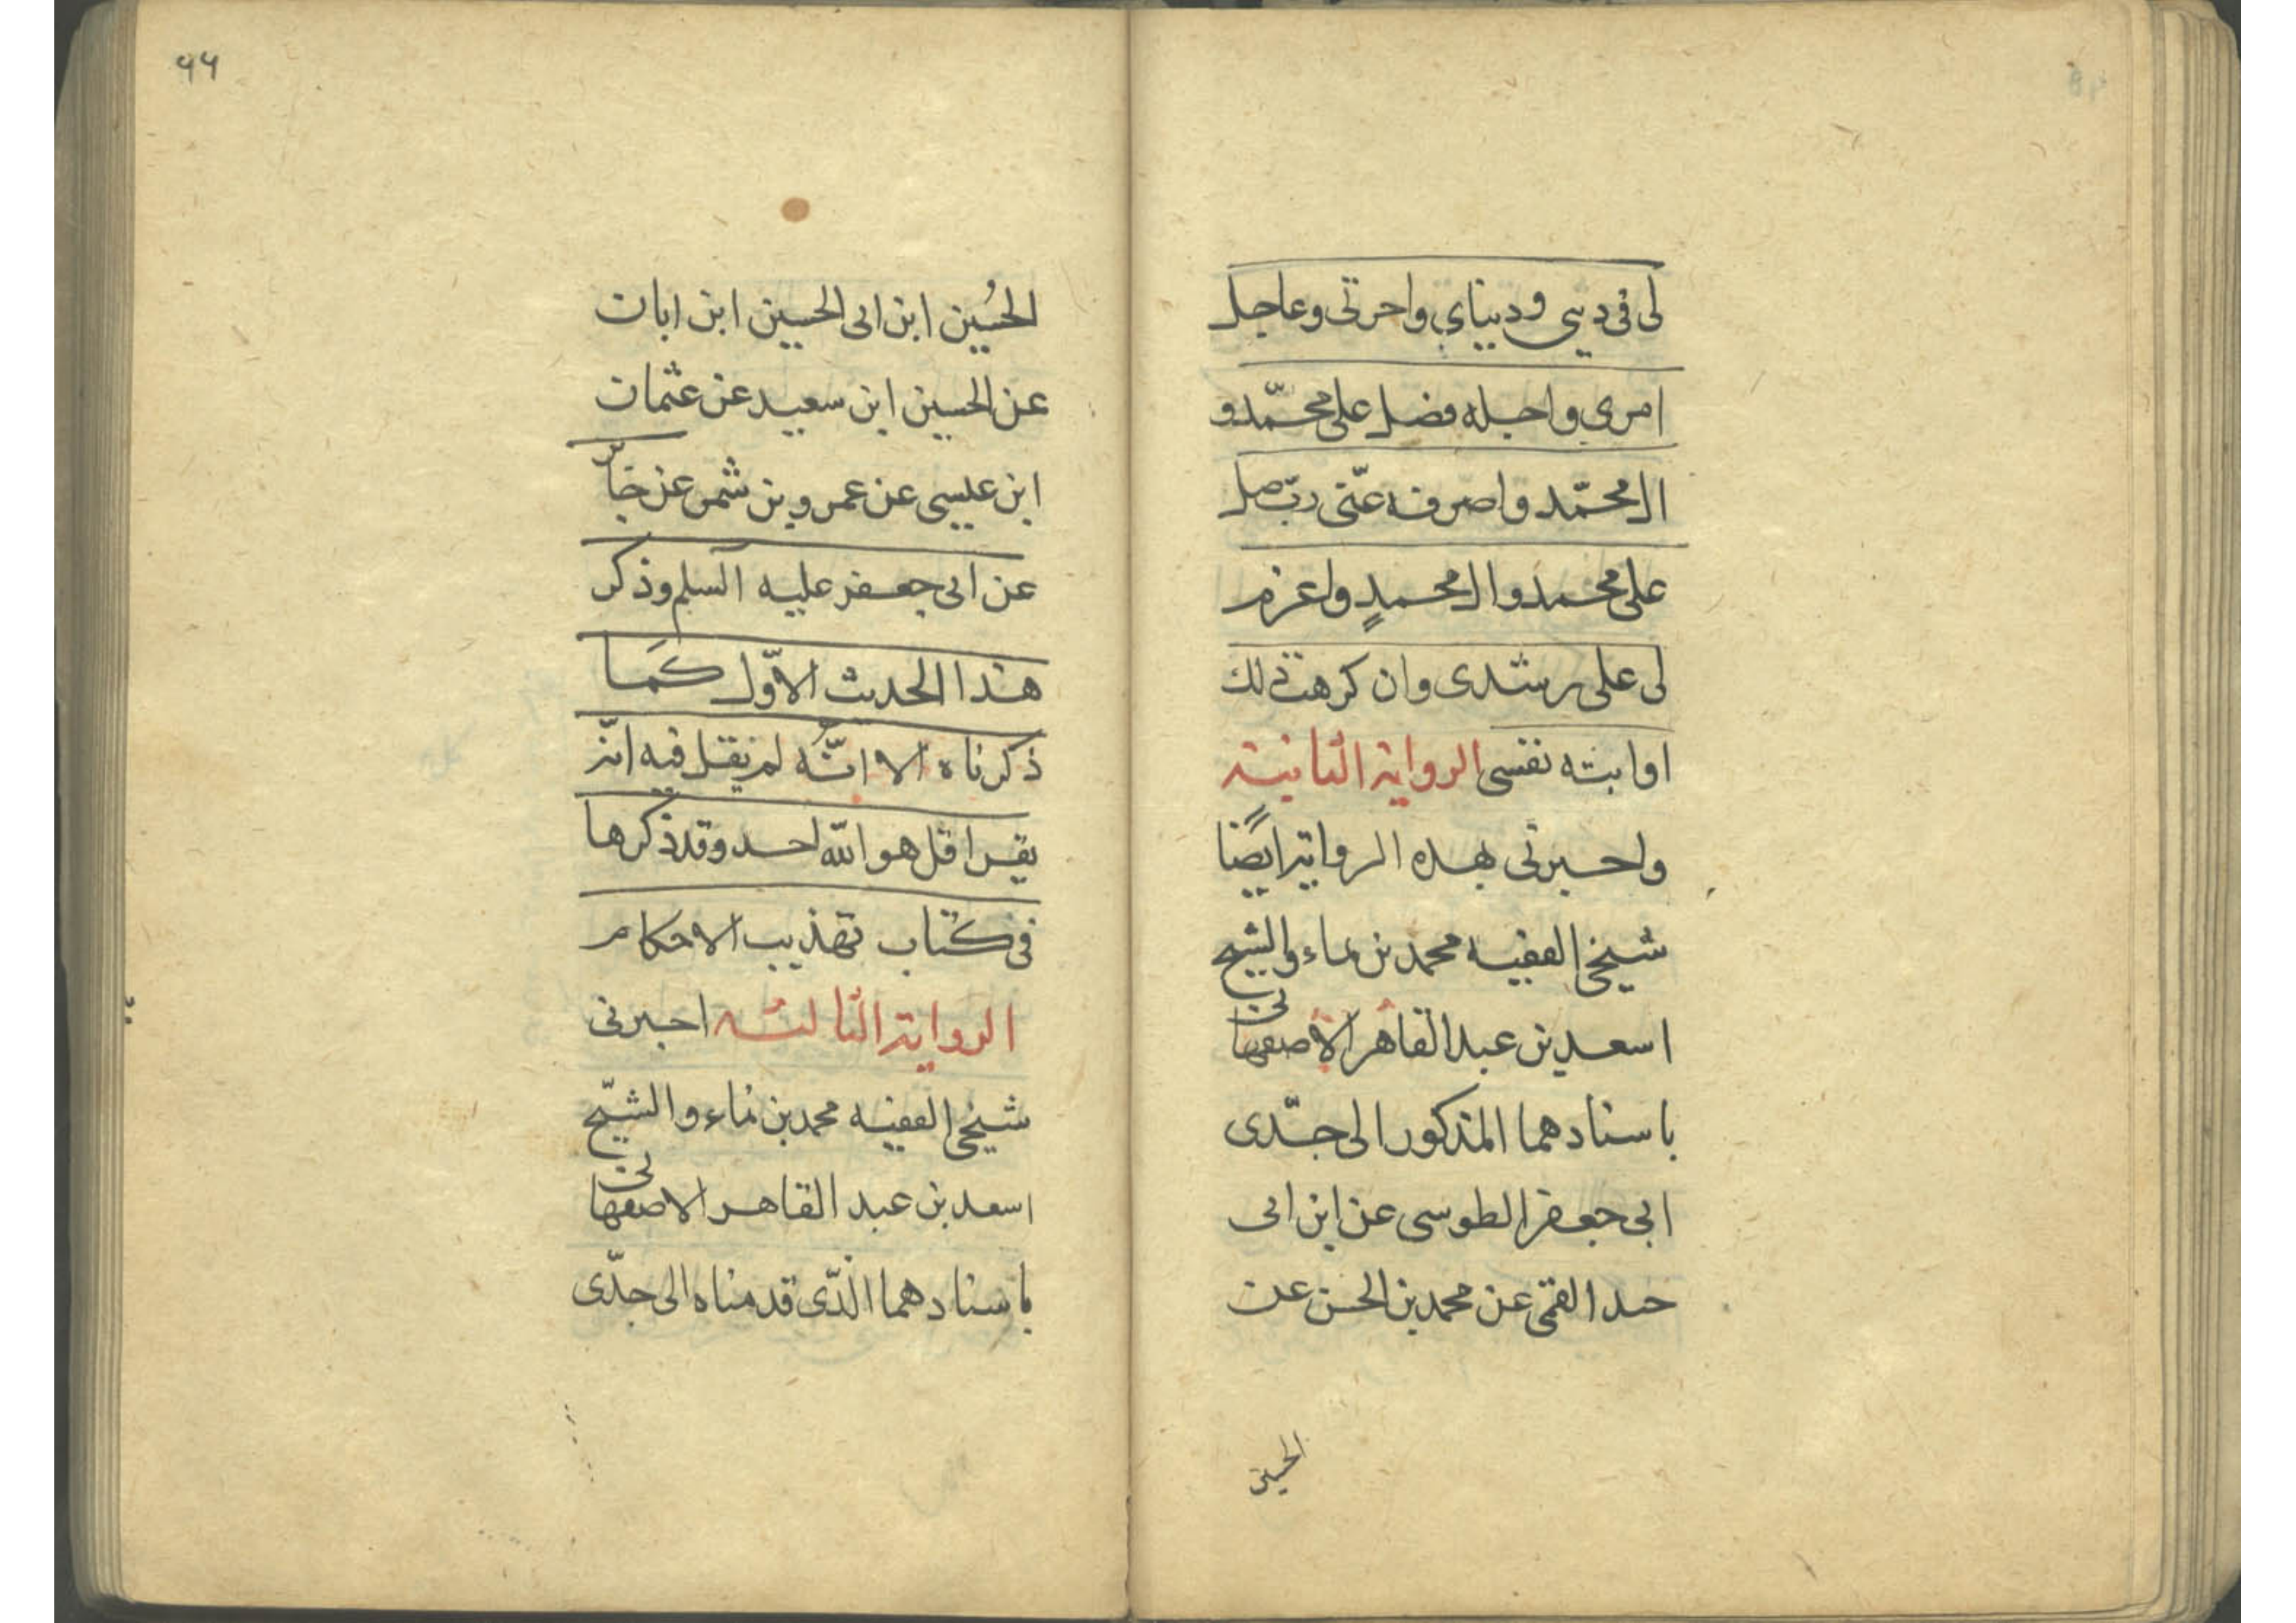 لى فى دينى و ديناي واخرتى وعاجل
امرى واجله فصل على محمّد و
ال محمّد واصرفه عنّى ربّ صل
على محمد وال محمدٍ واعزم
لى على رشدى وان كرهت ذلك
او ابته نفسى الرواية الثانية
واخبرنى بهذه الرواية ايضًا
شيخى الفقيه محمد بن نماء والشيخ
اسعد بن عبد القاهر الاصفهانى
باسنادهما المذكور الى جدّى
ابى جعفر الطوسى عن ابن ابى
جيد القمى عن محمد بن الحسن عن
الحسين
٩٩
الحُسين ابن ابى الحسين ابن ابان
عن الحسين ابن سعيد عن عثمان
ابن عيسى عن عمرو بن شمر عن جابر
عن ابى جعفر عليه السلم وذكر
هذا الحديث الاوّل كَما
ذكرناه الا انّه لم يقل فيه انّه
يقرا قل هو الله احد وقد ذكرها
فى كتاب تهذيب الاحكام
الرواية الثالثه اخبرنى
شيخى الفقيه محمد بن نماء والشيّخ
اسعد بن عبد القاهر الاصفهانى
باسنادهما الّذى قدمناه الى جدّى